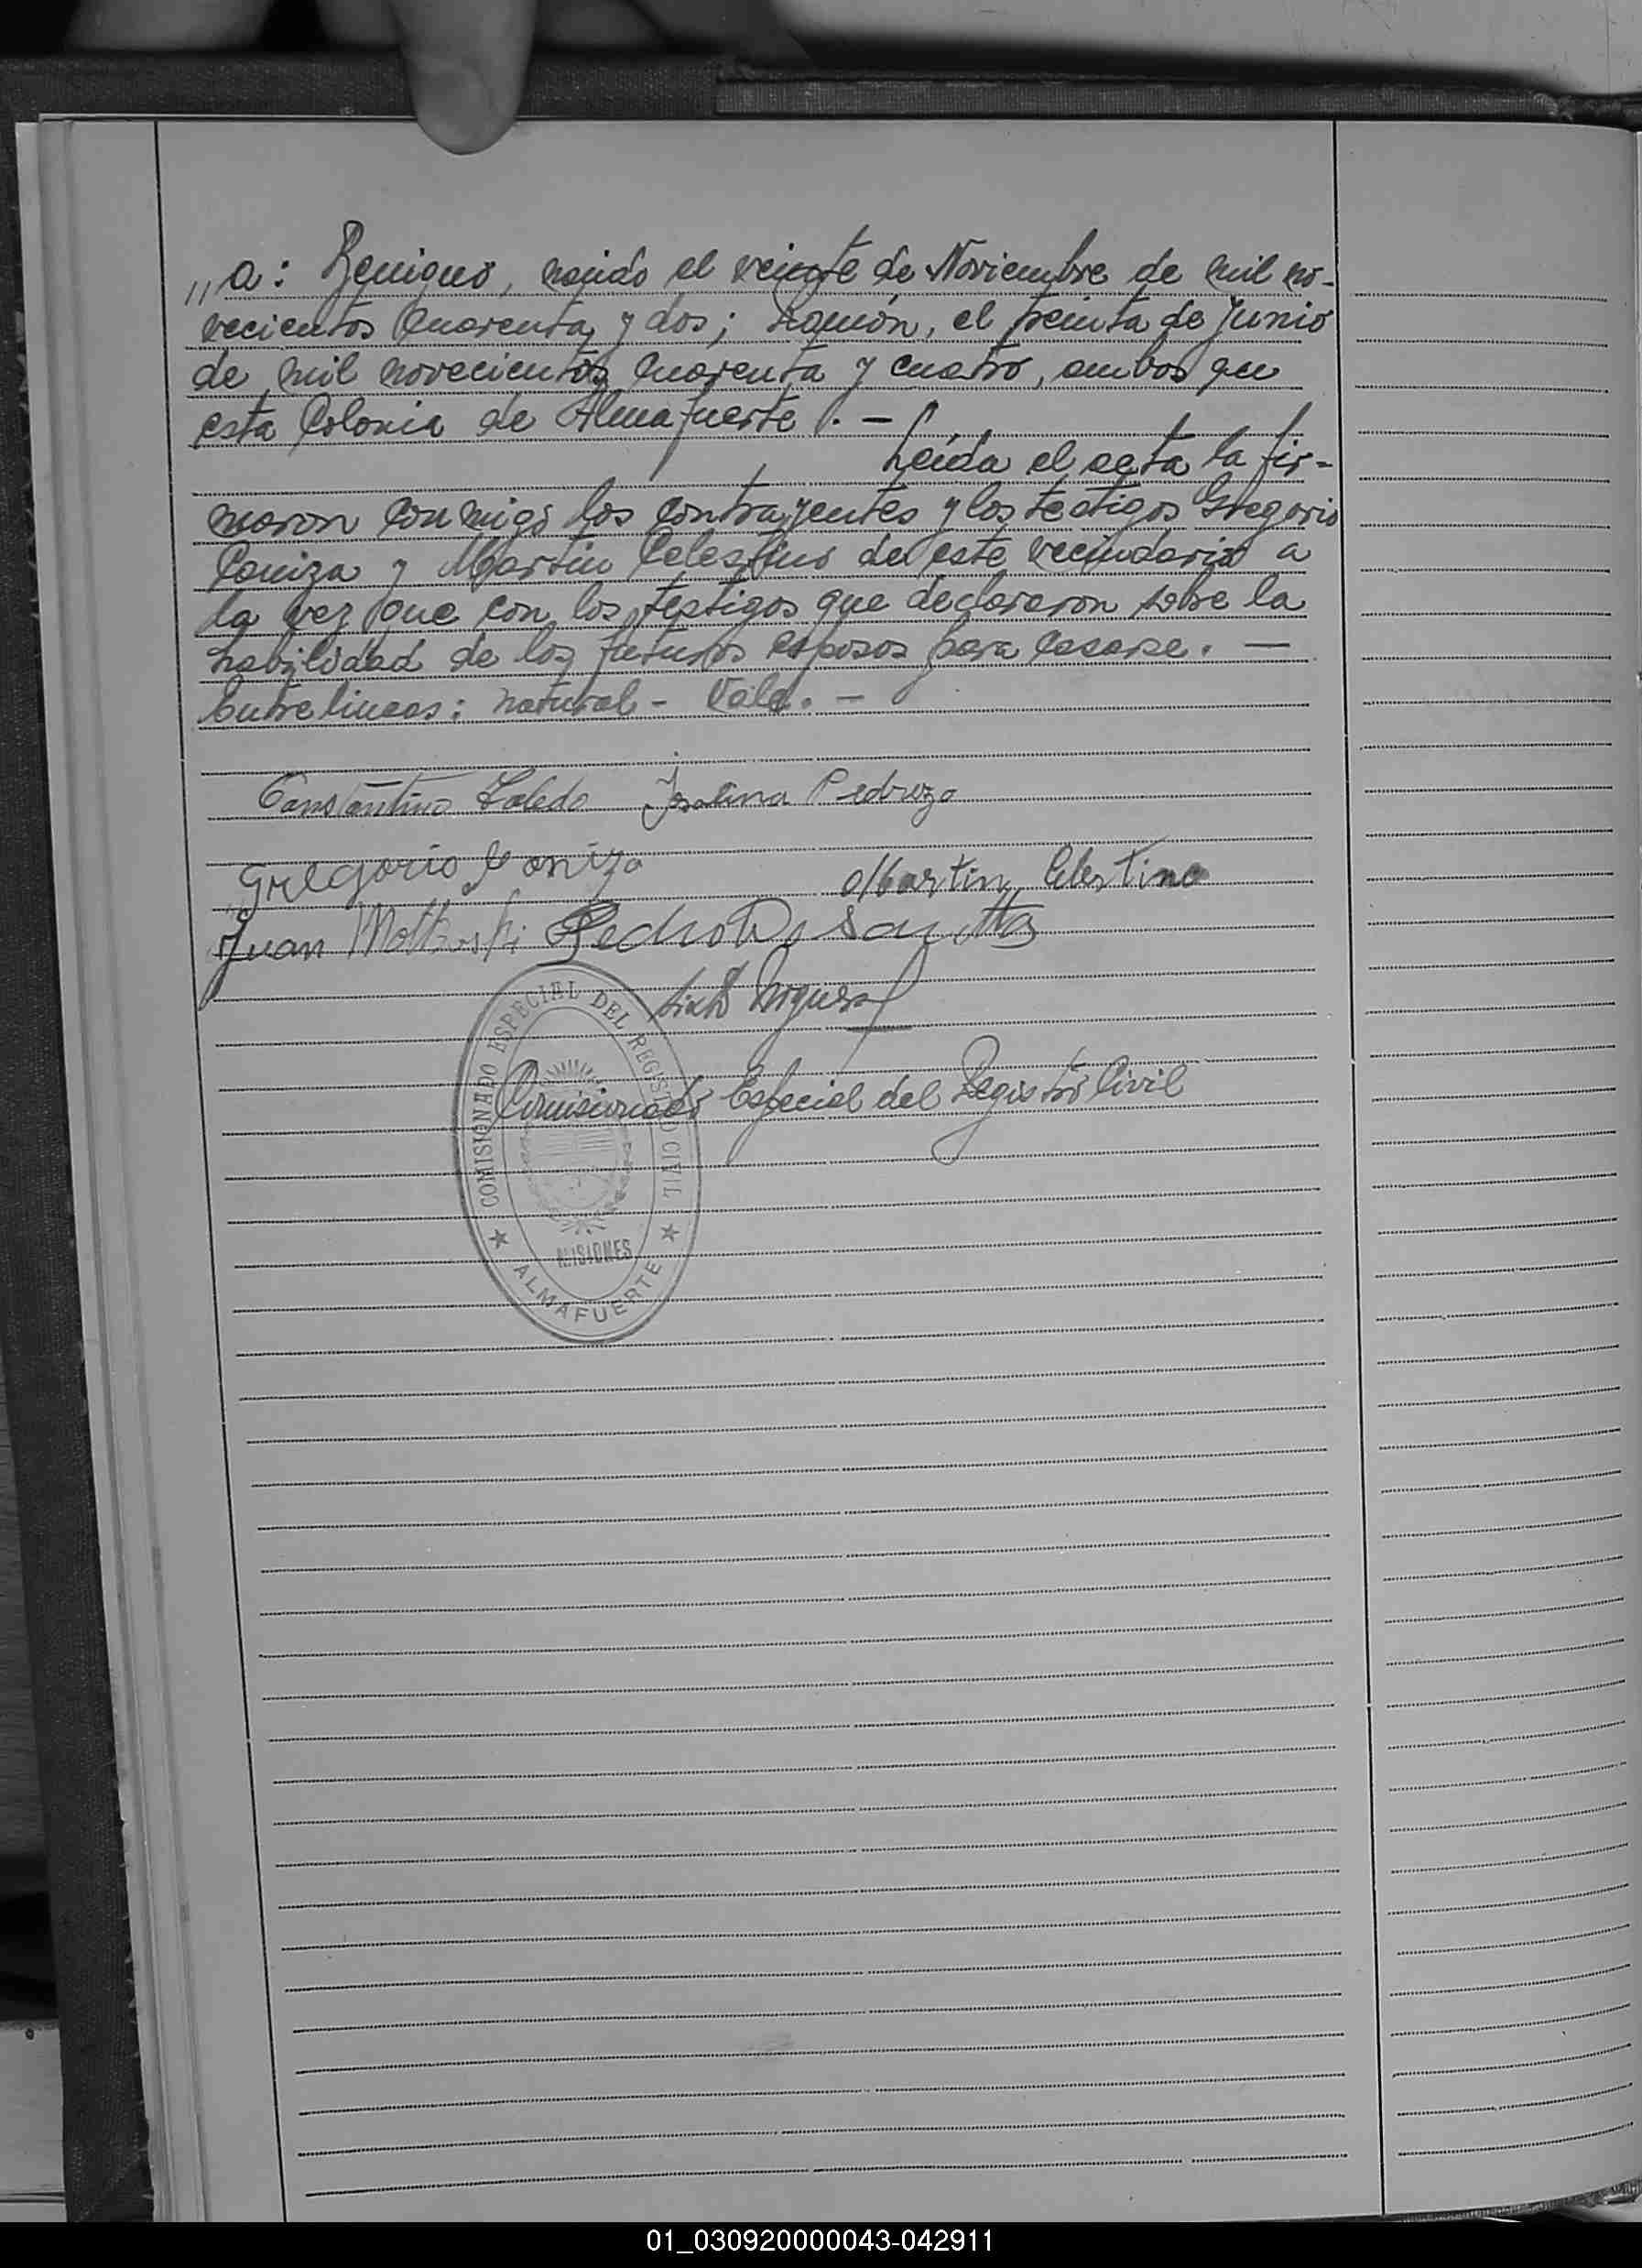 ,, a: Benigno, nacido el veinte de Noviembre de mil no-
vecientos cuarenta y dos; Ramón, el treinta de Junio
de mil novecientos cuarenta y cuatro, ambos en
esta Colonia de Almafuerte. —
Leída el acta la fir-
maron conmigo los contrayentes y los testigos Gregorio
Coniza y Martin Celestino de este vecindario a
la vez que con los testigos que declararon sobre la
habilidad de los futuros esposos para casarse. —
Entre lineas: natural - Vale. —
Constantino Toledo Josalina Pedrozo
Gregorio Coniza Martin Celestino
Juan Pedro
COMISIONADO ESPECIAL DEL REGISTRO CIVIL
Comisionado Especial del Registro Civil
MISIONES
★ ALMAFUERTE ★
01_030920000043-042911